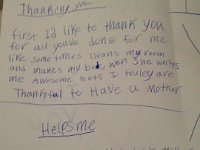 Thanking you
first I'd like to thank you
for all you've done for me
like some times cleans my room
and makes my bed wen she writes
me Awesome nots I truley are
Thankful to Have a Mother
Helps me